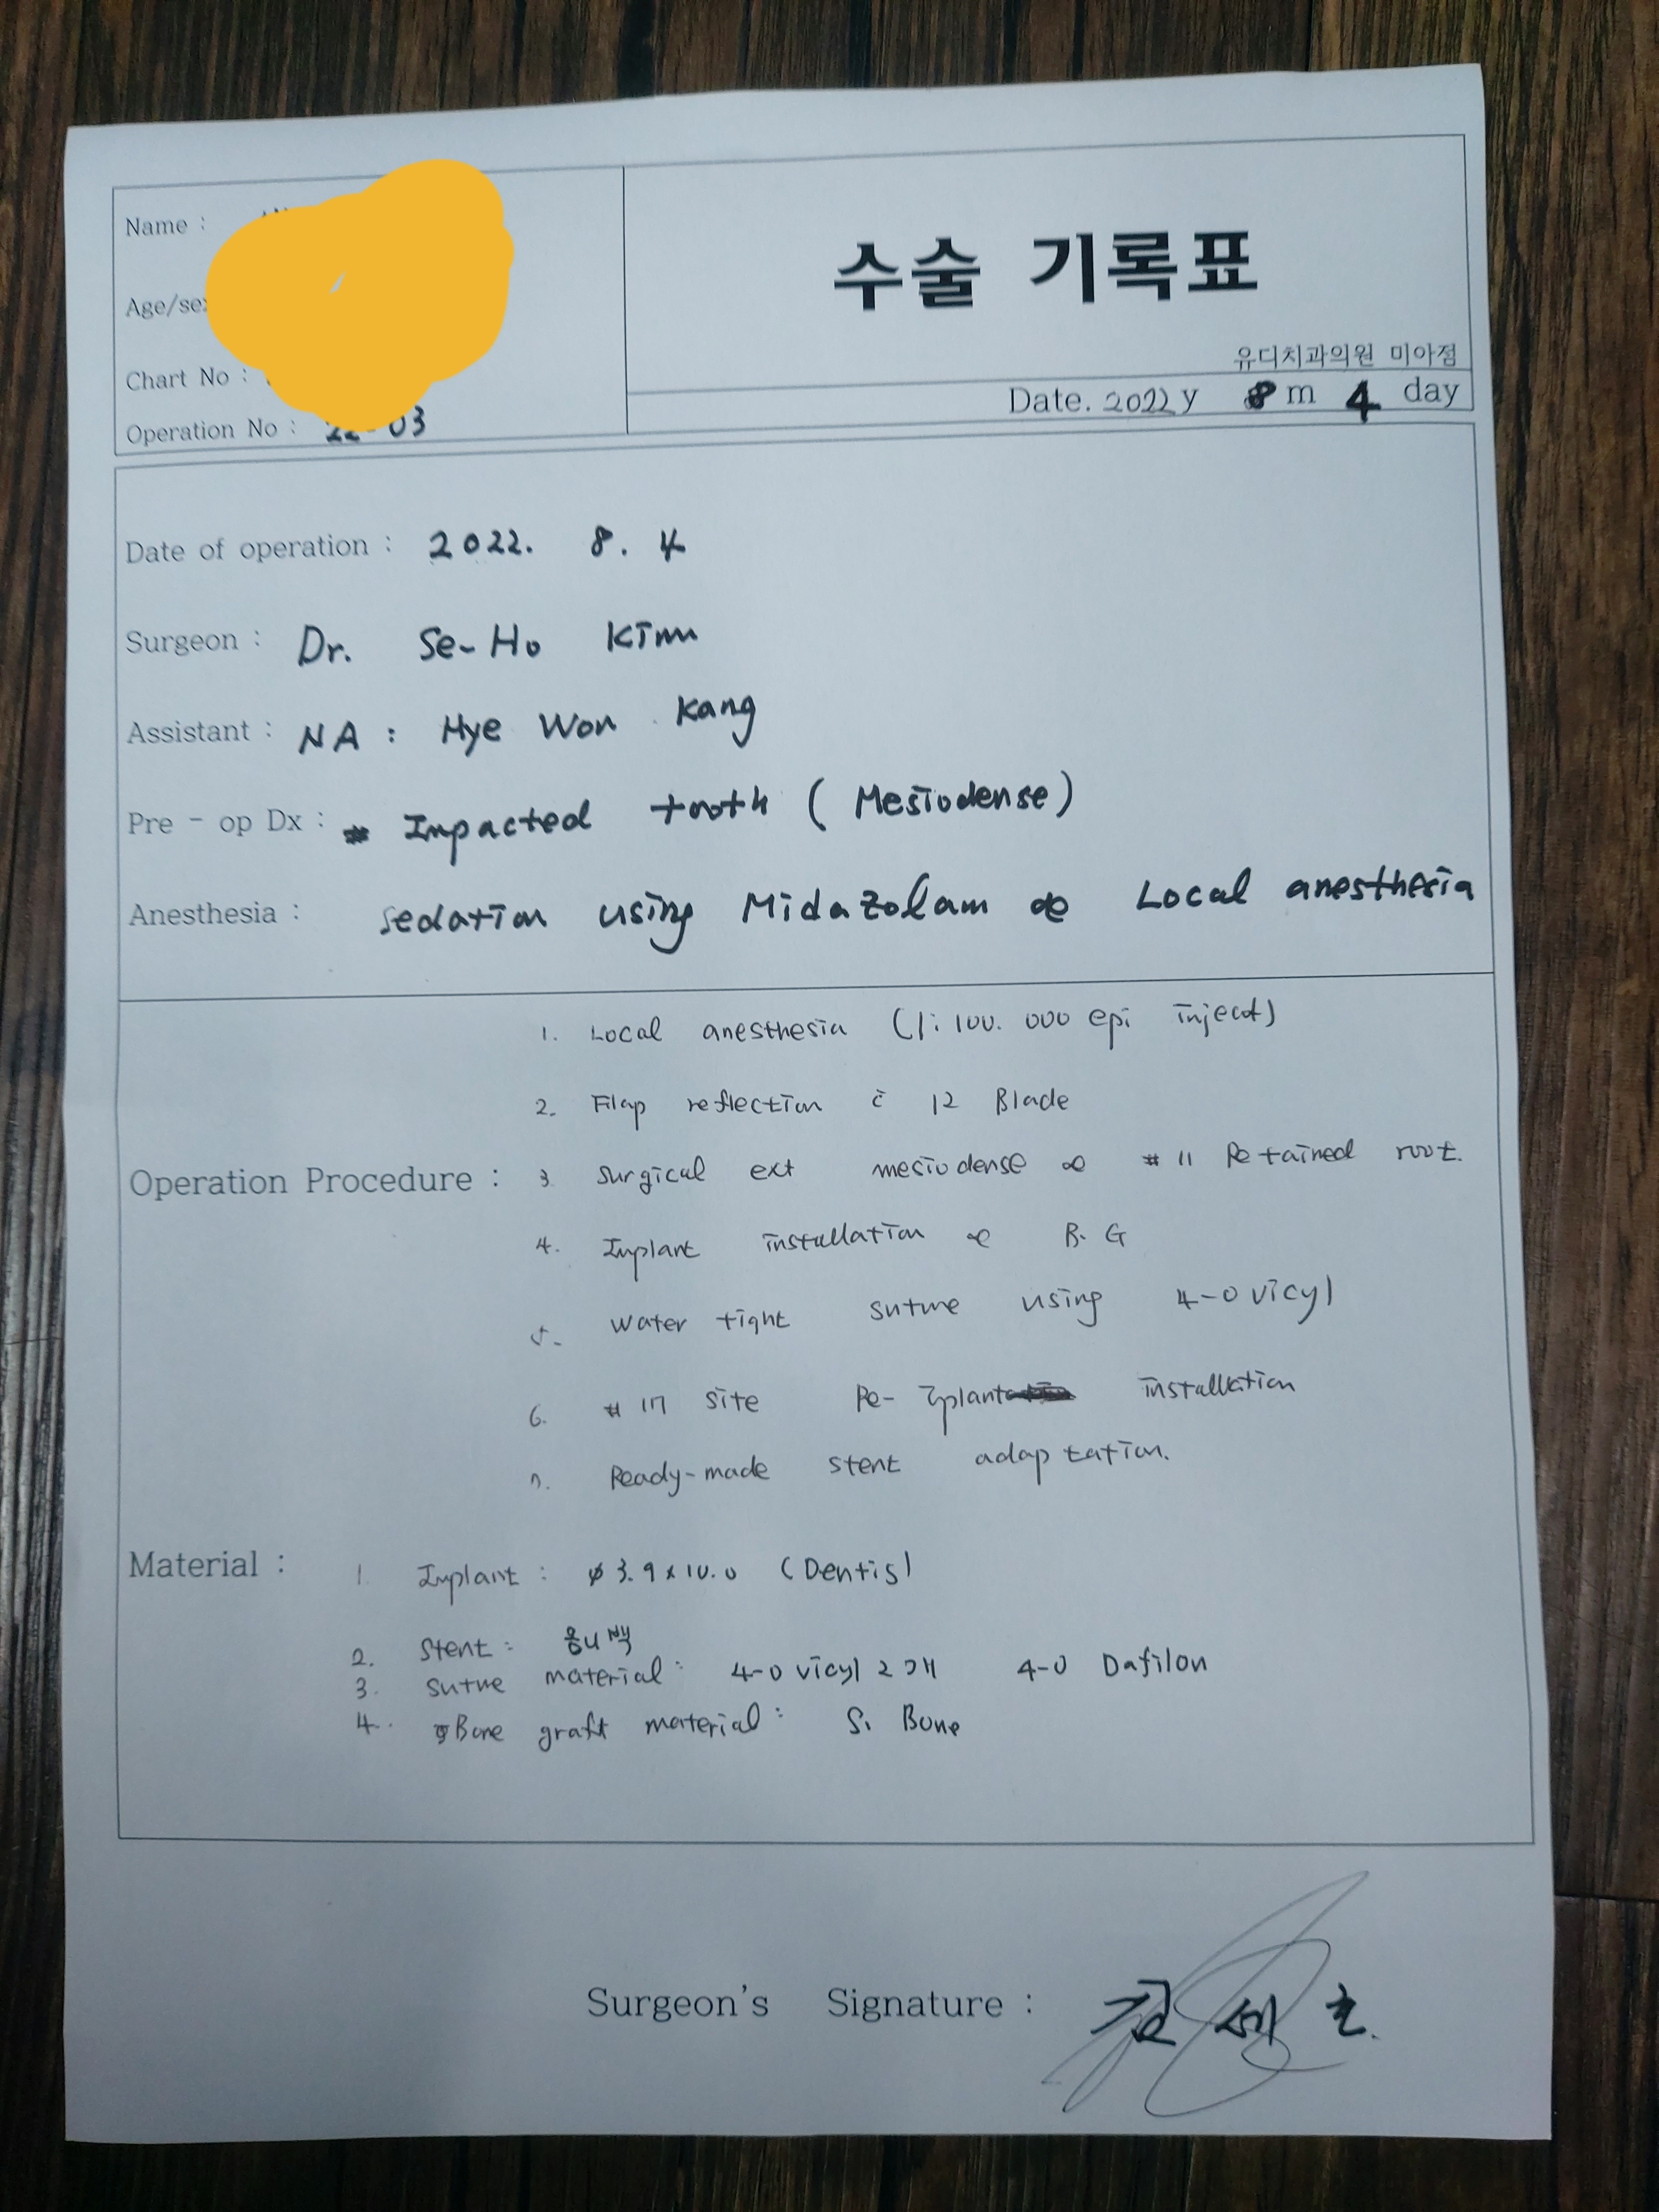 Name :
수술 기록표
Age/sex
유디치과의원 미아점
Chart No :
Date. 2022 y 8 m 4 day
Operation No : 22-03
Date of operation : 2022. 8. 4
Surgeon : Dr. Se-Ho Kim
Assistant : NA : Hye Won Kang
Pre - op Dx : # Impacted tooth ( Mesiodense )
Anesthesia : sedation using Midazolam & Local anesthesia
1. Local anesthesia (1:100.000 epi inject)
2. Flap reflection c̄ 12 Blade
Operation Procedure : 3. Surgical ext mesiodense & #11 Retained root.
4. Implant installation & B.G
5. Water tight suture using 4-0 vicyl
6. #17 site Re-Implant installation
7. Ready-made stent adaptation.
Material : 1. Implant : ø3.9x10.0 (Dentis)
2. Stent :
3. Suture material : 4-0 vicyl 2개 4-0 Dafilon
4. Bone graft material : S. Bone
Surgeon's Signature : 김세호